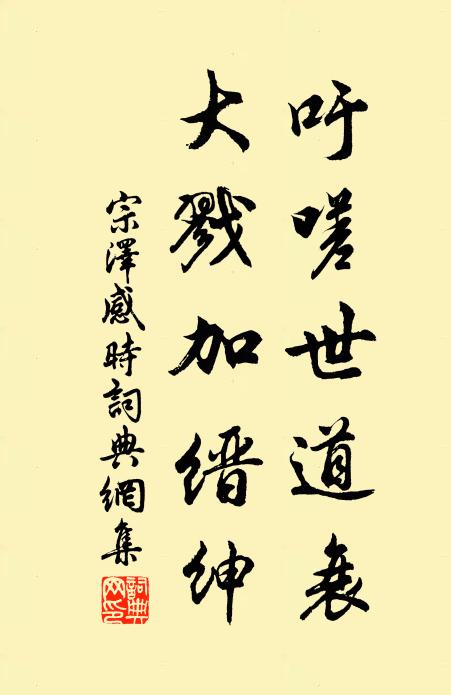 吁嗟世道衰
大戮加缙绅
宗澤感時詞典網集
詞典网印